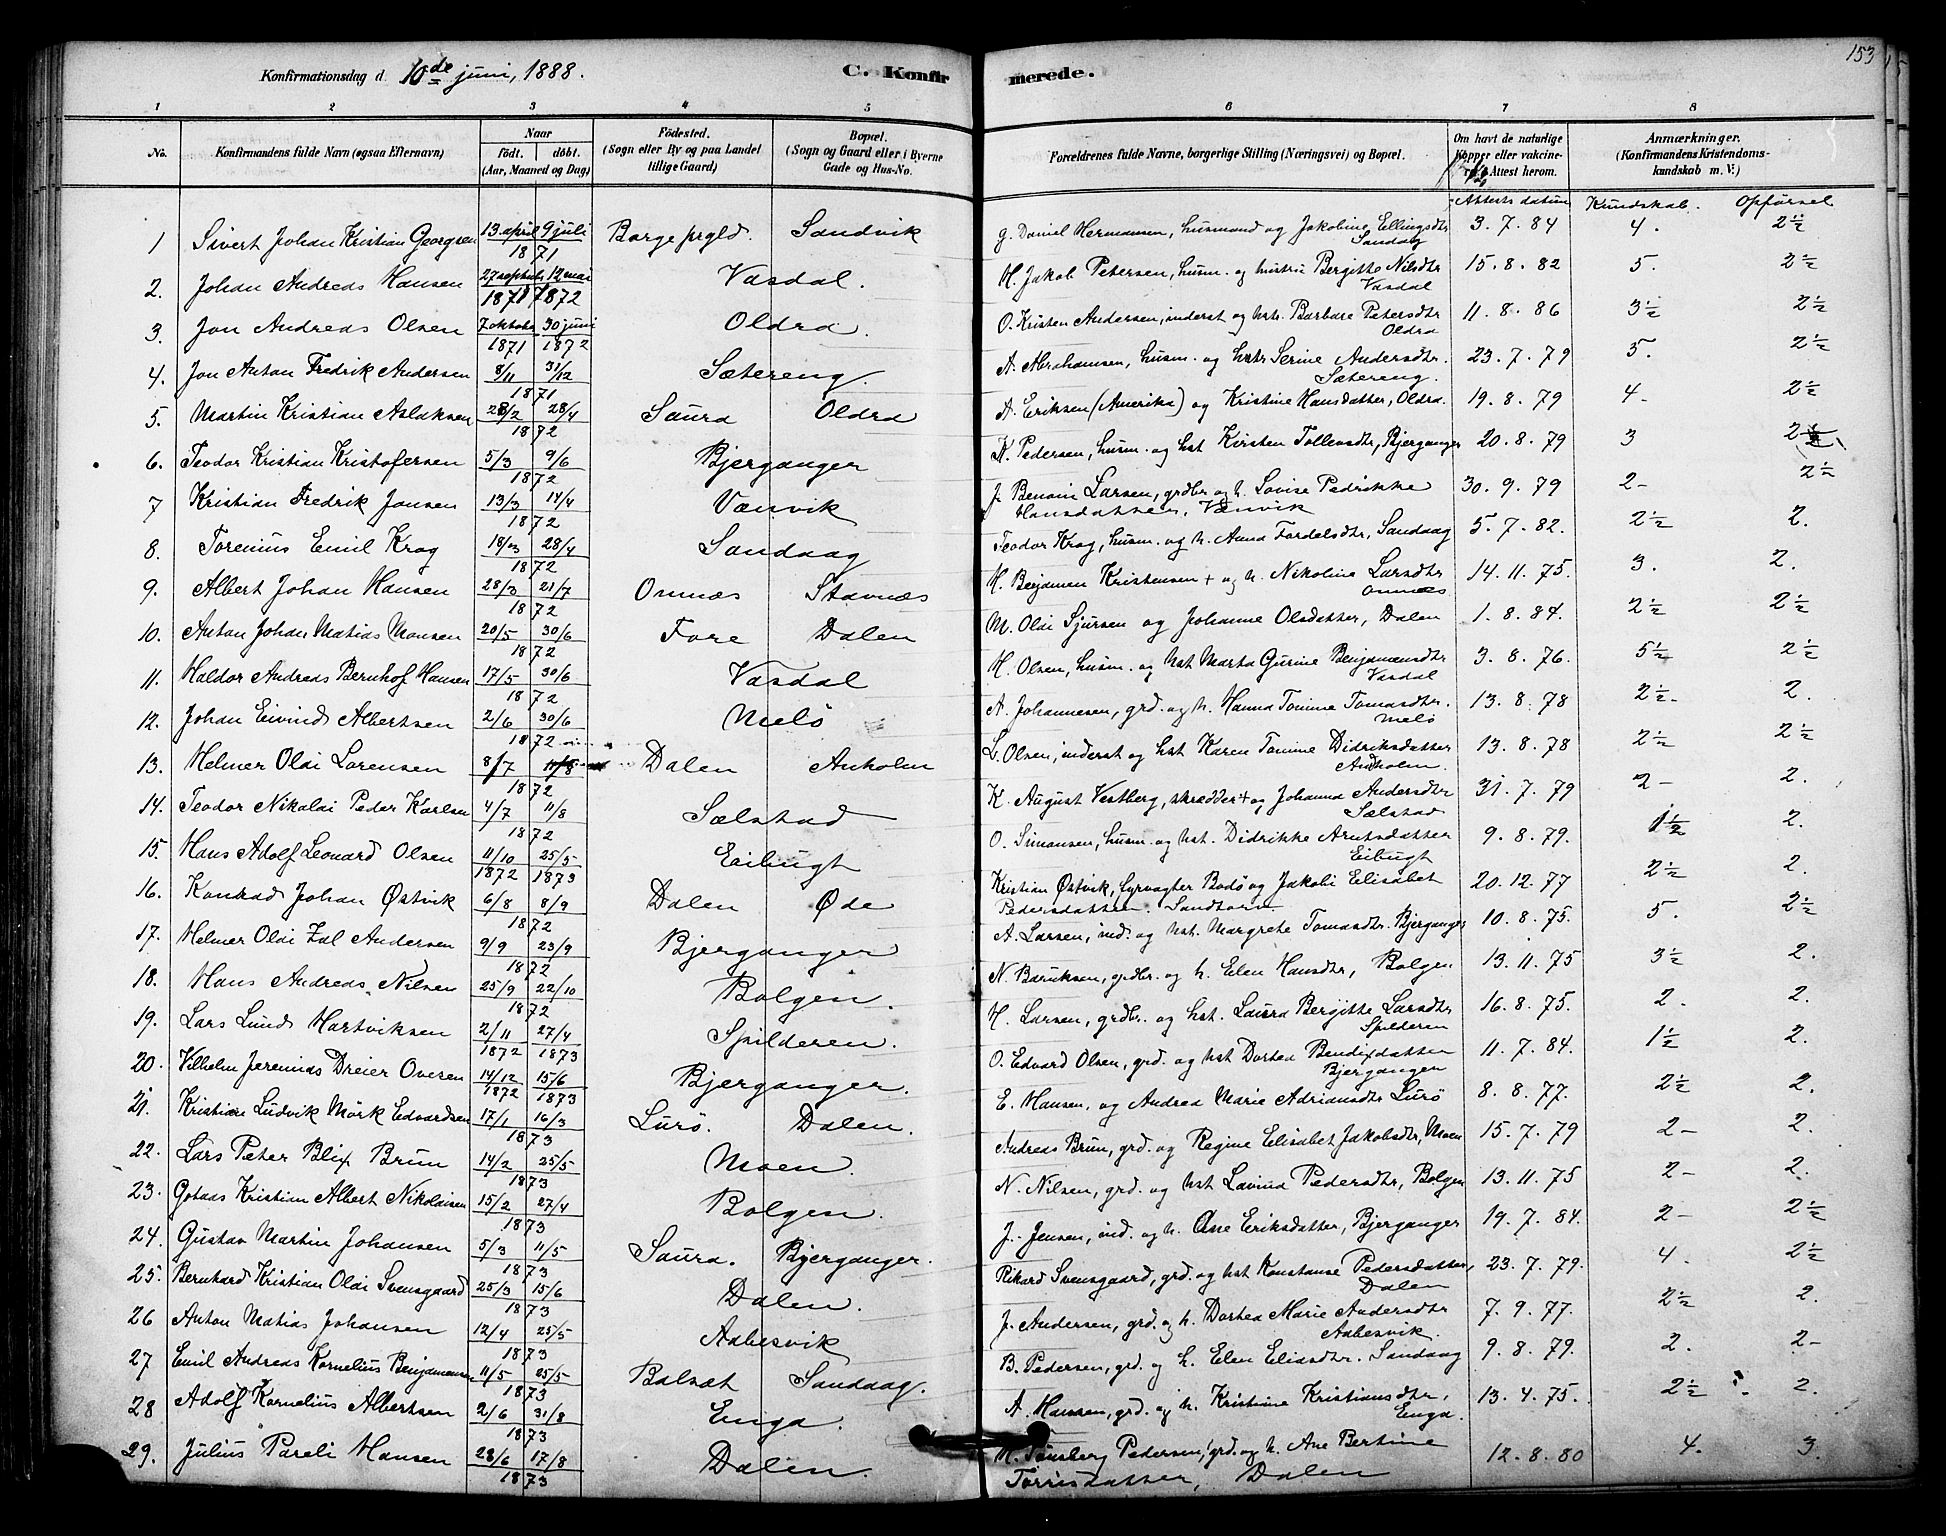 153
Konfirmationsdag d. 10de juni, 1888.
C. Konfir merede.
1 2 3 4 5 6 7 8
No. Konfirmandens fulde Navn (ogsaa Efternavn) Naar født. døbt. (Aar, Maaned og Dag) Fødested. (Sogn eller By og paa Landet tillige Gaard) Bopæl. (Sogn og Gaard eller i Byerne Gade og Hus-No. Forældrenes fulde Navne, borgerlige Stilling (Næringsvei) og Bopæl. Om havt de naturlige Kopper eller vakcineret. Attest herom. Anmærkninger. (Konfirmandens Kristendomskundskab m. V.)
Attests datum Kundskab. Opførsel
1 Sivert Johan Kristian Georgsen 13 april 9 juli 1871 Borge prgld. Sandvik G. Daniel Hermansen, husmand og Jakobine Ellingsdtr Sandaag 3.7.84 4. 2½
2. Johan Andreas Hansen 27 septbr 12 mai 1871 1872 Vasdal. H. Jakob Petersen, husm. og hustru Bergitte Nilsdtr Vasdal 15.8.82 5. 2½
3. Jon Andreas Olsen 7 oktobr 30 juni 1871 1872 Oldra. O. Kristen Andersen, inderst og hstr. Barbare Petersdtr Oldra 11.8.86 3½ 2½
4. Jon Anton Fredrik Andersen 8/11 31/12 1871 Sætereng. A. Abrahamsen, husm. og hstr Serine Andersdtr. Sætereng. 23.7.79 5. 2½
5. Martin Kristian Aslaksen 28/2 28/4 1872 Saura Oldra A. Eriksen (Amerika) og Kristine Hansdatter, Oldra. 19.8.79 4- 2½
6. Teodor Kristian Kristofersen 5/3 9/6 1872 Bjerganger K. Pedersen, husm. og hst Kirsten Tollevsdtr, Bjerganger 20.8.79 3 2½
7 Kristian Fredrik Jonsen 13/3 14/4 1872 Vænvik J. Benoni Larsen, grdbr og h. Lovise Pedrikke Hansdatter, Vænvik 30.9.79 2- 2½
8. Torenius Emil Krog 18/3 28/4 1872 Sandaag Teodor Krog, husm. og h. Anna Fordelsdtr, Sandaag 5.7.82. 2½ 2.
9. Albert Johan Hansen 28/3 21/7 1872 Onnæs Stavnæs H. Benjamen Kristensen + og h. Nikoline Larsdtr Onnæs 14.11.75. 3. 2.
10. Anton Johan Matias Monsen 20/5 30/6 1872 Fore Dalen M. Oldi Sjursen og Johanne Olsdatter, Dalen 1.8.84. 2½ 2½
11. Haldor Andreas Bernhof Hansen 17/5 30/6 1872 Vasdal H. Olsen, husm. og hst Marta Gurine Benjamensdtr Vasdal 3.8.76. 5½ 2½
12. Johan Eivind Albertsen 2/6 30/6 1872 Melø A. Johannesen, grd. og h. Hanna Tomine Tomasdtr. Melø 13.8.78 2½- 2.
13. Helmer Oldi Lorensen 8/7 11/8 1872 Dalen Anholm L. Olsen, inderst og hst Karen Tomine Didriksdatter Andholm. 13.8.78 2½ 2½
14. Teodor Nikolai Peder Karlsen 4/7 11/8 1872 Sælstad K. August Vestberg, skrædder + og Johanna Andersdtr Sælstad 31.7.79 2- 2.
15. Hans Adolf Leonard Olsen 11/10 25/5 1872 1873 Eibugt O. Simonsen, husm. og hst. Didrikke Arntsdatter Eibugt 9.8.79. 1½ 2.
16. Konrad Johan Østvik 6/8 8/9 1872 Dalen Øde Kristian Østvik, fyrvagter Bodø og Jakobi Elisabet Pedersdatter. Sandhorn 20.12.77 2½ 2.
17. Helmer Oldi Zal Andersen 9/9 23/9 1872 Bjerganger A. Larsen, ind. og hst. Margrete Tomasdtr. Bjerganger 10.8.75. 5. 2½
18. Hans Andreas Nilsen 25/9 22/10 1872 Bolgen. N. Baruksen, grdbr. og h. Elen Hansdtr, Bolgen 13.11.75 3½ 2.
19. Lars Lund Hartviksen 2/11 27/4 1872 1873 Spilderen. H. Larsen, grdbr. og hst. Laura Bergitte Larsdtr Spilderen 16.8.75. 2. 2.
20. Vilhelm Jeremias Dreier Ovesen 14/12 15/6 1872 1873 Bjerganger. O. Edvard Olsen, grd. og hst Dortea Bendixdatter Bjerganger 11.7.84. 1½ 2.
21. Kristian Ludvik Mørk Edvardsen 17/1 16/3 1873 Lurø. Dalen. E. Hansen, og Andrea Marie Adriansdtr Lurø 8.8.77. 2½ 2.
22. Lars Peter Blix Brun 14/2 25/5 1873 Moen. Andreas Brun, grd. og Regine Elisabet Jakobsdtr, Moen 15.7.79 2- 2.
23. Gotaas Kristian Albert Nikolaisen 15/2 27/4 1873 Bolgen. N. Nilsen, grd. og hst Lavina Pedersdtr, Bolgen 13.11.75 2- 2.
24. Gustav Martin Johansen 5/3 11/5 1873 Saura. Bjerganger. J. Jensen, ind. og h. Ane Eriksdatter, Bjerganger 19.7.84. 2- 2½
25. Bernhard Kristian Oldi Svensgaard 25/3 15/6 1873 Dalen. Rikard Svensgaard, grd. og hst Konstanse Pedersdatter, Dalen 23.7.79. 4. 2½
26 Anton Matias Johansen 12/4 25/5 1873 Aabesvik J. Andersen, grd. og h. Dortea Marie Andersdtr Aabesvik. 7.9.77. 2½ 2.
27 Emil Andreas Kornelius Benjamensen 11/5 25/5 1873 Balsæt Sandaag. B. Pedersen, grd. og h. Elen Eliasdtr. Sandaag 9.8.79. 2. 2-
28 Adolf Kornelius Albertsen 2/6 31/8 1873 Enga. A. Hansen, grd. og h. Kristine Kristiansdtr, Enga. 13.4.75. 2½- 2.
29. Julius Pareli Hansen 28/6 17/8 1873 Dalen. H. Tønsberg Pedersen, grd. og h. Ane Bertine Torrisdatter, Dalen 12.8.80 4. 3.